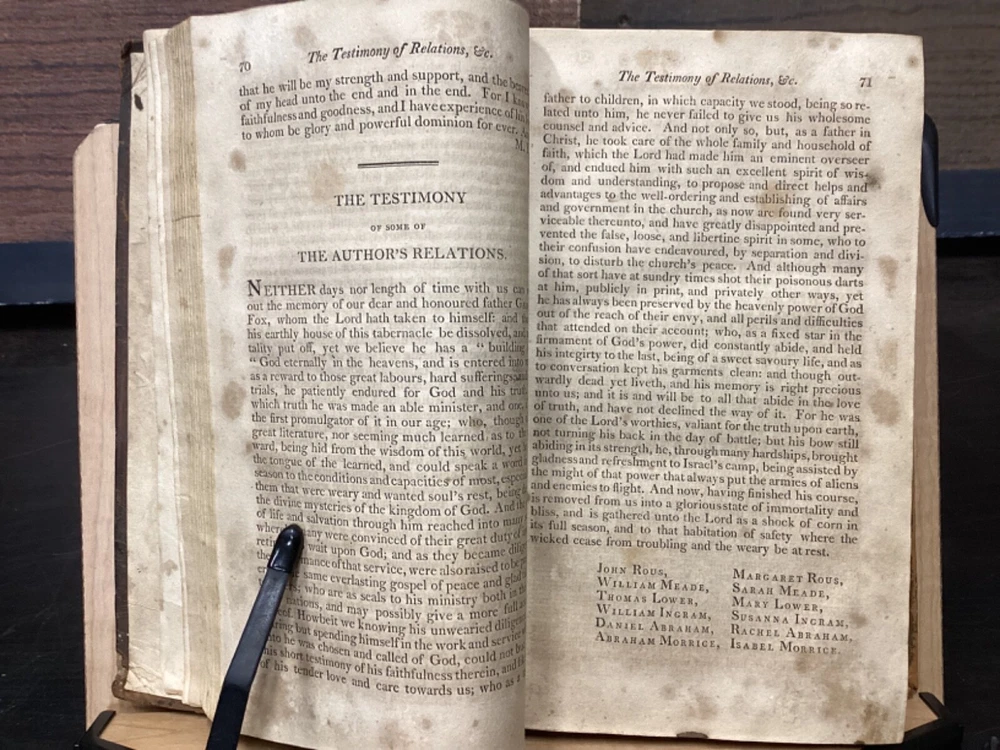 70
The Testimony of Relations, &c.
that he will be my strength and support, and the
of my head unto the end and in the end. For I
faithfulness and goodness, and I have experience of
to whom be glory and powerful dominion for ever.
M.
THE TESTIMONY
OF SOME OF
THE AUTHOR'S RELATIONS.
NEITHER days nor length of time with us can
out the memory of our dear and honoured father
Fox, whom the Lord hath taken to himself: and
his earthly house of this tabernacle be dissolved, and
tality put off, yet we believe he has a "building
"God eternally in the heavens, and is entered into
as a reward to those great labours, hard sufferings and
trials, he patiently endured for God and his truth
which truth he was made an able minister, and one
the first promulgator of it in our age; who, though
great literature, nor seeming much learned, as to the
ward, being hid from the wisdom of this world, yet
the tongue of the learned, and could speak a word
season to the conditions and capacities of most,
them that were weary and wanted soul's rest, being
the divine mysteries of the kingdom of God. And
of life and salvation through him reached into many
any were convinced of their great duty
wait upon God; and as they became
of that service, were also raised to be
same everlasting gospel of peace and glad
who are as seals to his ministry both in
nations, and may possibly give a more full
Howbeit we knowing his unwearied
but spending himself in the work and service
he was chosen and called of God, could not but
his short testimony of his faithfulness therein, and
of his tender love and care towards us; who as a
The Testimony of Relations, &c.
71
father to children, in which capacity we stood, being so re-
lated unto him, he never failed to give us his wholesome
counsel and advice. And not only so, but, as a father in
Christ, he took care of the whole family and household of
faith, which the Lord had made him an eminent overseer
of, and endued him with such an excellent spirit of wis-
dom and understanding, to propose and direct helps and
advantages to the well-ordering and establishing of affairs
and government in the church, as now are found very ser-
viceable thereunto, and have greatly disappointed and pre-
vented the false, loose, and libertine spirit in some, who to
their confusion have endeavoured, by separation and divi-
sion, to disturb the church's peace. And although many
of that sort have at sundry times shot their poisonous darts
at him, publicly in print, and privately other ways, yet
he has always been preserved by the heavenly power of God
out of the reach of their envy, and all perils and difficulties
that attended on their account; who, as a fixed star in the
firmament of God's power, did constantly abide, and held
his integrity to the last, being of a sweet savoury life, and as
to conversation kept his garments clean: and though out-
wardly dead yet liveth, and his memory is right precious
unto us; and it is and will be to all that abide in the love
of truth, and have not declined the way of it. For he was
one of the Lord's worthies, valiant for the truth upon earth,
not turning his back in the day of battle; but his bow still
abiding in its strength, he, through many hardships, brought
gladness and refreshment to Israel's camp, being assisted by
the might of that power that always put the armies of aliens
and enemies to flight. And now, having finished his course,
is removed from us into a glorious state of immortality and
bliss, and is gathered unto the Lord as a shock of corn in
its full season, and to that habitation of safety where the
wicked cease from troubling and the weary be at rest.
JOHN ROUS,
WILLIAM MEADE,
THOMAS LOWER,
WILLIAM INGRAM,
DANIEL ABRAHAM,
ABRAHAM MORRICE,
MARGARET ROUS,
SARAH MEADE,
MARY LOWER,
SUSANNA INGRAM,
RACHEL ABRAHAM,
ISABEL MORRICE.